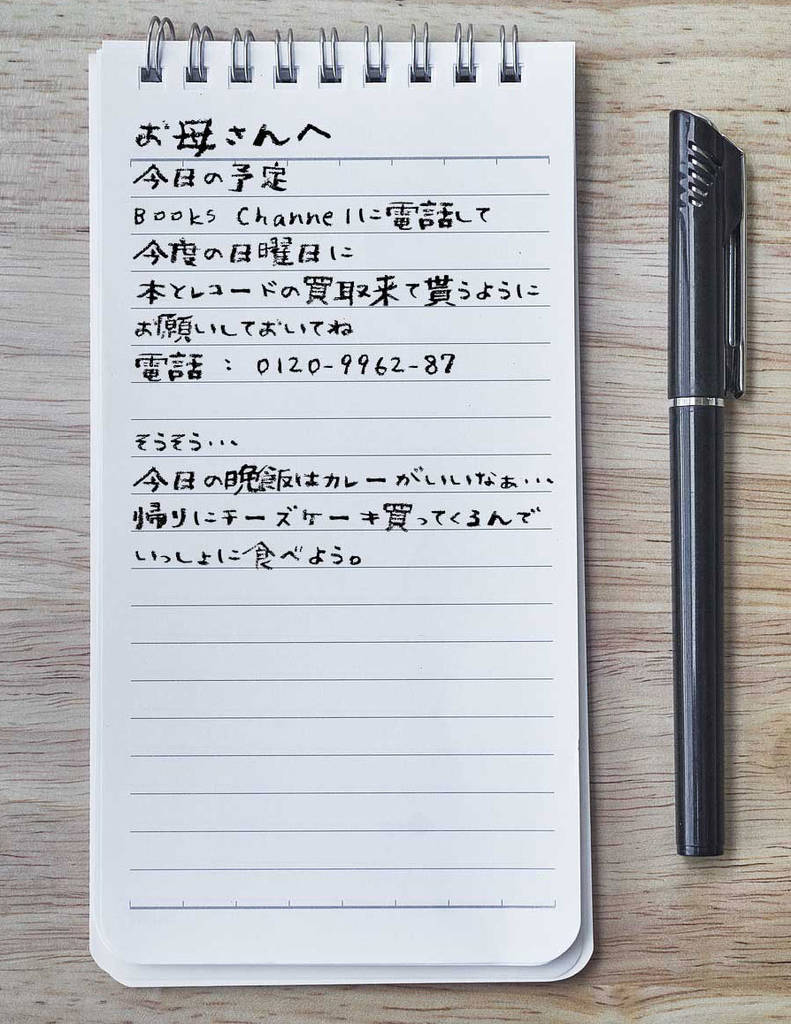 お母さんへ
今日の予定
Books Channelに電話して
今度の日曜日に
本とレコードの買取来て貰うように
お願いしておいてね
電話 : 0120-9962-87
そうそう...
今日の晩飯はカレーがいいなぁ...
帰りにチーズケーキ買ってくるんで
いっしょに食べよう。